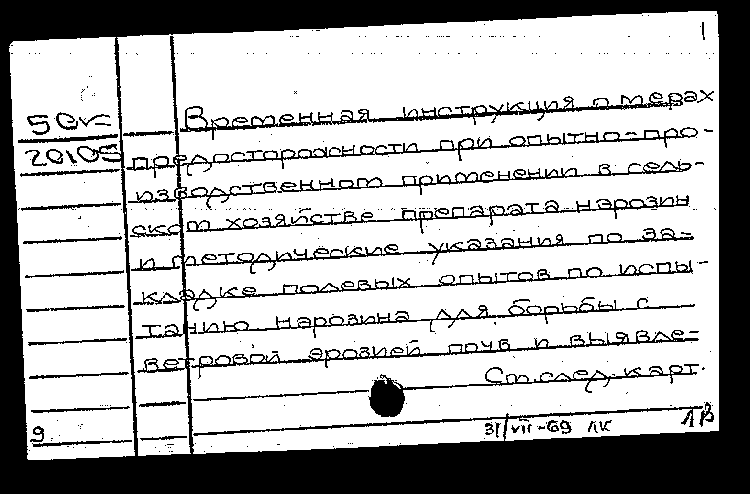 1
5Ск
20105
Временная инструкция о мерах
предосторожности при опытно-про-
изводственном применении в сель-
ском хозяйстве препарата нарозин
и методические указания по за-
кладке полевых опытов по испы-
танию нарозина для борьбы с
ветровой эрозией почв и выявле-
См. след. карт.
9
31/VII-69 ЛК